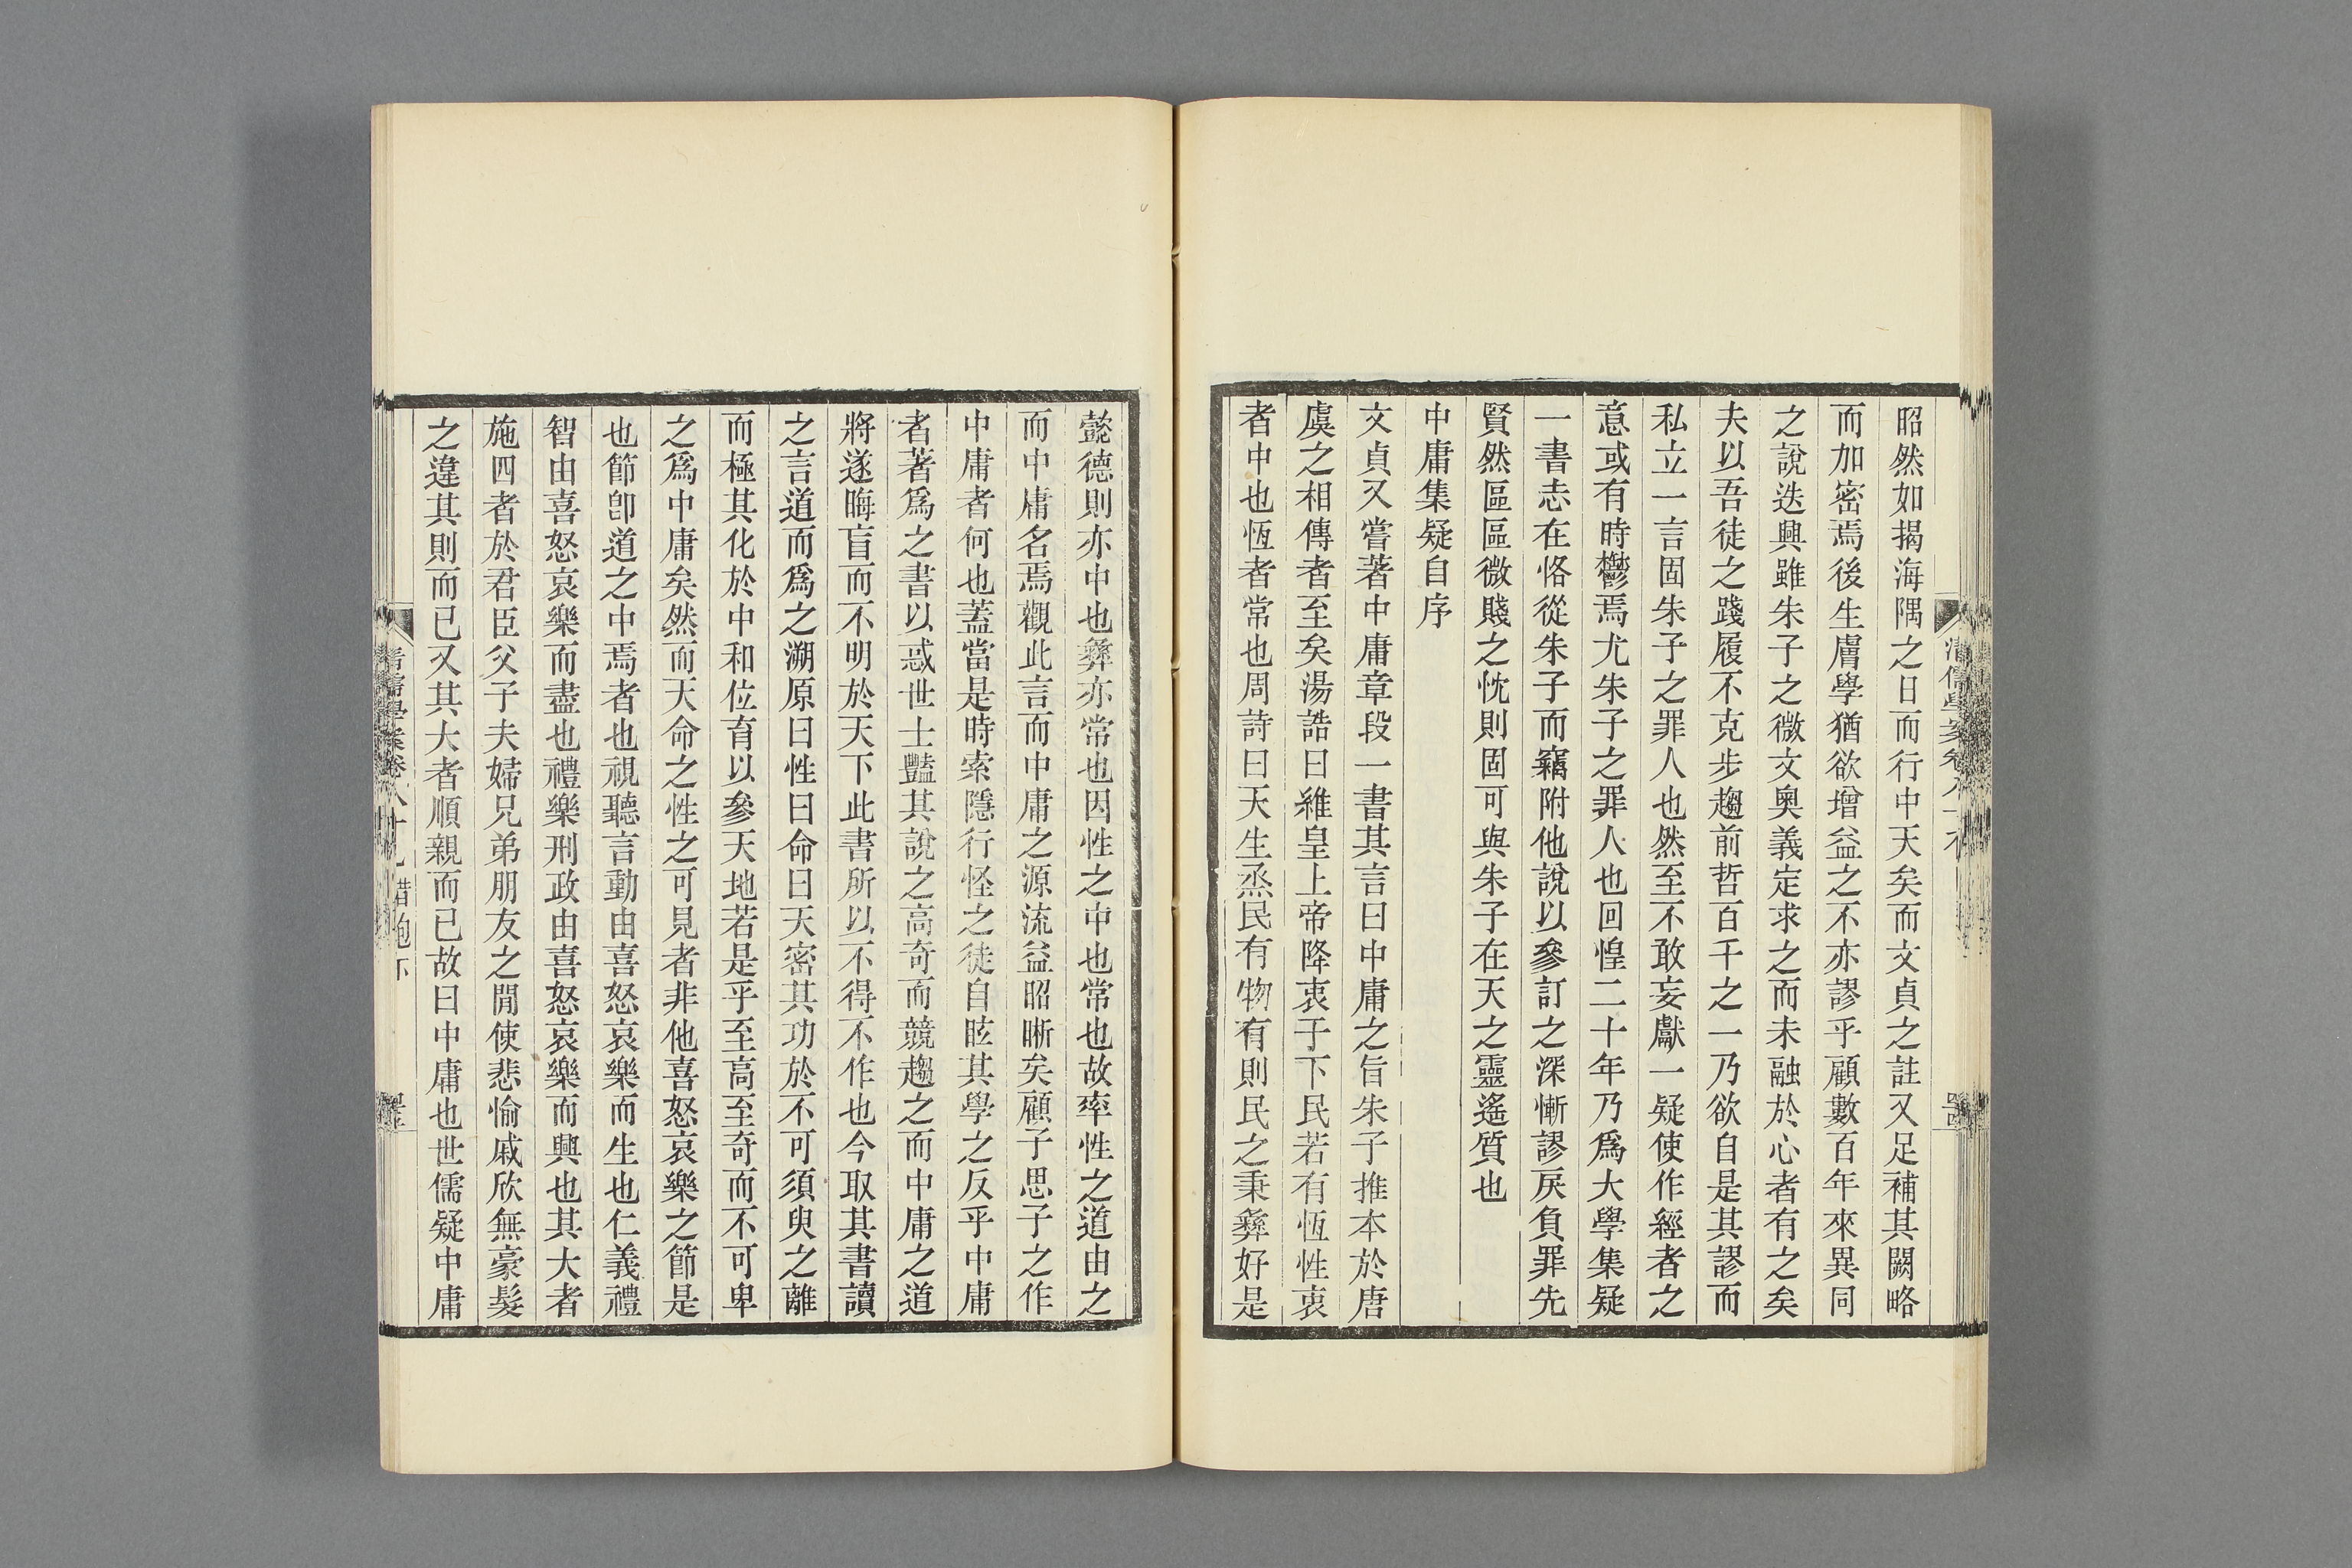 昭然如揭海隅之日而行中天矣而文貞之註又足補其闕略
而加密焉後生膚學猶欲增益之不亦謬乎顧數百年來異同
之說迭興雖朱子之微文奧義定求之而未融於心者有之矣
夫以吾徒之踐履不克步趨前哲百千之一乃欲自是其謬而
私立一言固朱子之罪人也然至不敢妄獻一疑使作經者之
意或有時鬱焉尤朱子之罪人也回惶二十年乃爲大學集疑
一書志在恪從朱子而竊附他說以參訂之深慚謬戾負罪先
賢然區區微賤之忱則固可與朱子在天之靈遙質也
中庸集疑自序
文貞又嘗著中庸章段一書其言曰中庸之旨朱子推本於唐
虞之相傳者至矣湯誥曰維皇上帝降衷于下民若有恆性衷
者中也恆者常也周詩曰天生烝民有物有則民之秉彝好是
懿德則亦中也彝亦常也因性之中也常也故率性之道由之
而中庸名焉觀此言而中庸之源流益昭晰矣顧子思子之作
中庸者何也蓋當是時索隱行怪之徒自眩其學之反乎中庸
者著爲之書以惑世士豔其說之高奇而競趨之而中庸之道
將遂晦盲而不明於天下此書所以不得不作也今取其書讀
之言道而爲之溯原曰性曰命曰天密其功於不可須臾之離
而極其化於中和位育以參天地若是乎至高至奇而不可卑
之爲中庸矣然而天命之性之可見者非他喜怒哀樂之節是
也節卽道之中焉者也視聽言動由喜怒哀樂而生也仁義禮
智由喜怒哀樂而盡也禮樂刑政由喜怒哀樂而興也其大者
施四者於君臣父子夫婦兄弟朋友之閒使悲愉戚欣無豪髮
之違其則而已又其大者順親而已故曰中庸也世儒疑中庸